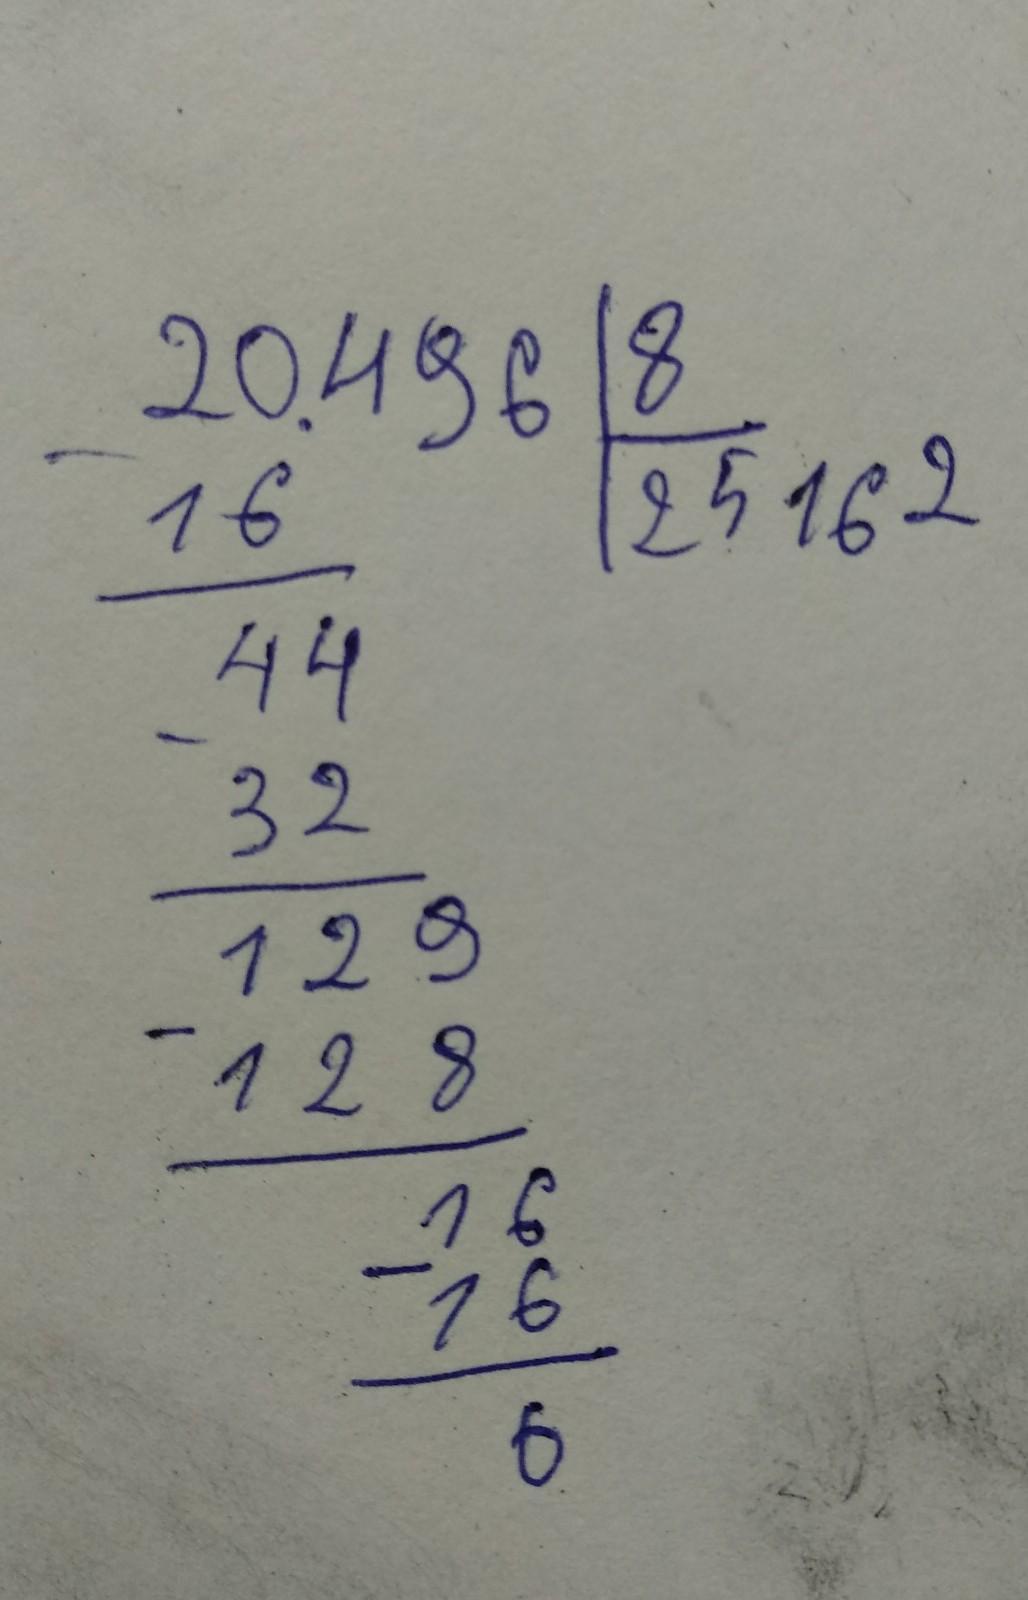 20.496 8
25162
- 16
44
- 32
129
- 128
16
- 16
0